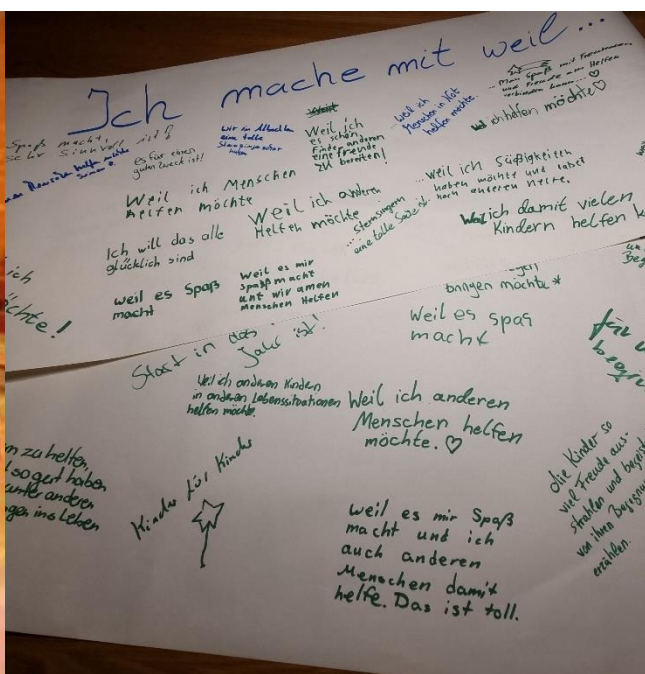 Ich mache mit weil...
Spaß macht,
sehr Sinnvoll ist?
es für einen
guten zweck ist!
wir in
eine tolle
haben
Weil ich
es schön
finde anderen
eine freude
zu bereiten!
... weil ich
Menschen in Not
helfen möchte.
... Man Spaß mit Freunden
und Freude am Helfen
verbinden kann...♡
ich helfen möchte♡
Weil ich Menschen
helfen möchte
Weil ich anderen
Helfen möchte
... Sternsingern
eine tolle Sache ist.
...weil ich Süßigkeiten
haben möchte und dabei
noch anderen helfe.
ich damit vielen
Kindern helfen k
Ich will das alle
glücklich sind
weil es Spaß
macht
Weil es mir
spaß macht
unt wir amen
Menschen Helfen
ich
öchte!
bringen möchte*
Weil es spas
macht
Start in das
Jahr ist!
Weil ich anderen Kindern
in anderen Lebenssituationen
helfen möchte.
Weil ich anderen
Menschen helfen
möchte.♡
für
zu helfen,
so gert haben
unter anderen
gen ins Leben
Kinder für Kinder
weil es mir Spaß
macht und ich
auch anderen
Menschen damit
helfe. Das ist toll.
die Kinder so
viel Freude aus-
strahlen und
von ihren
erzählen.